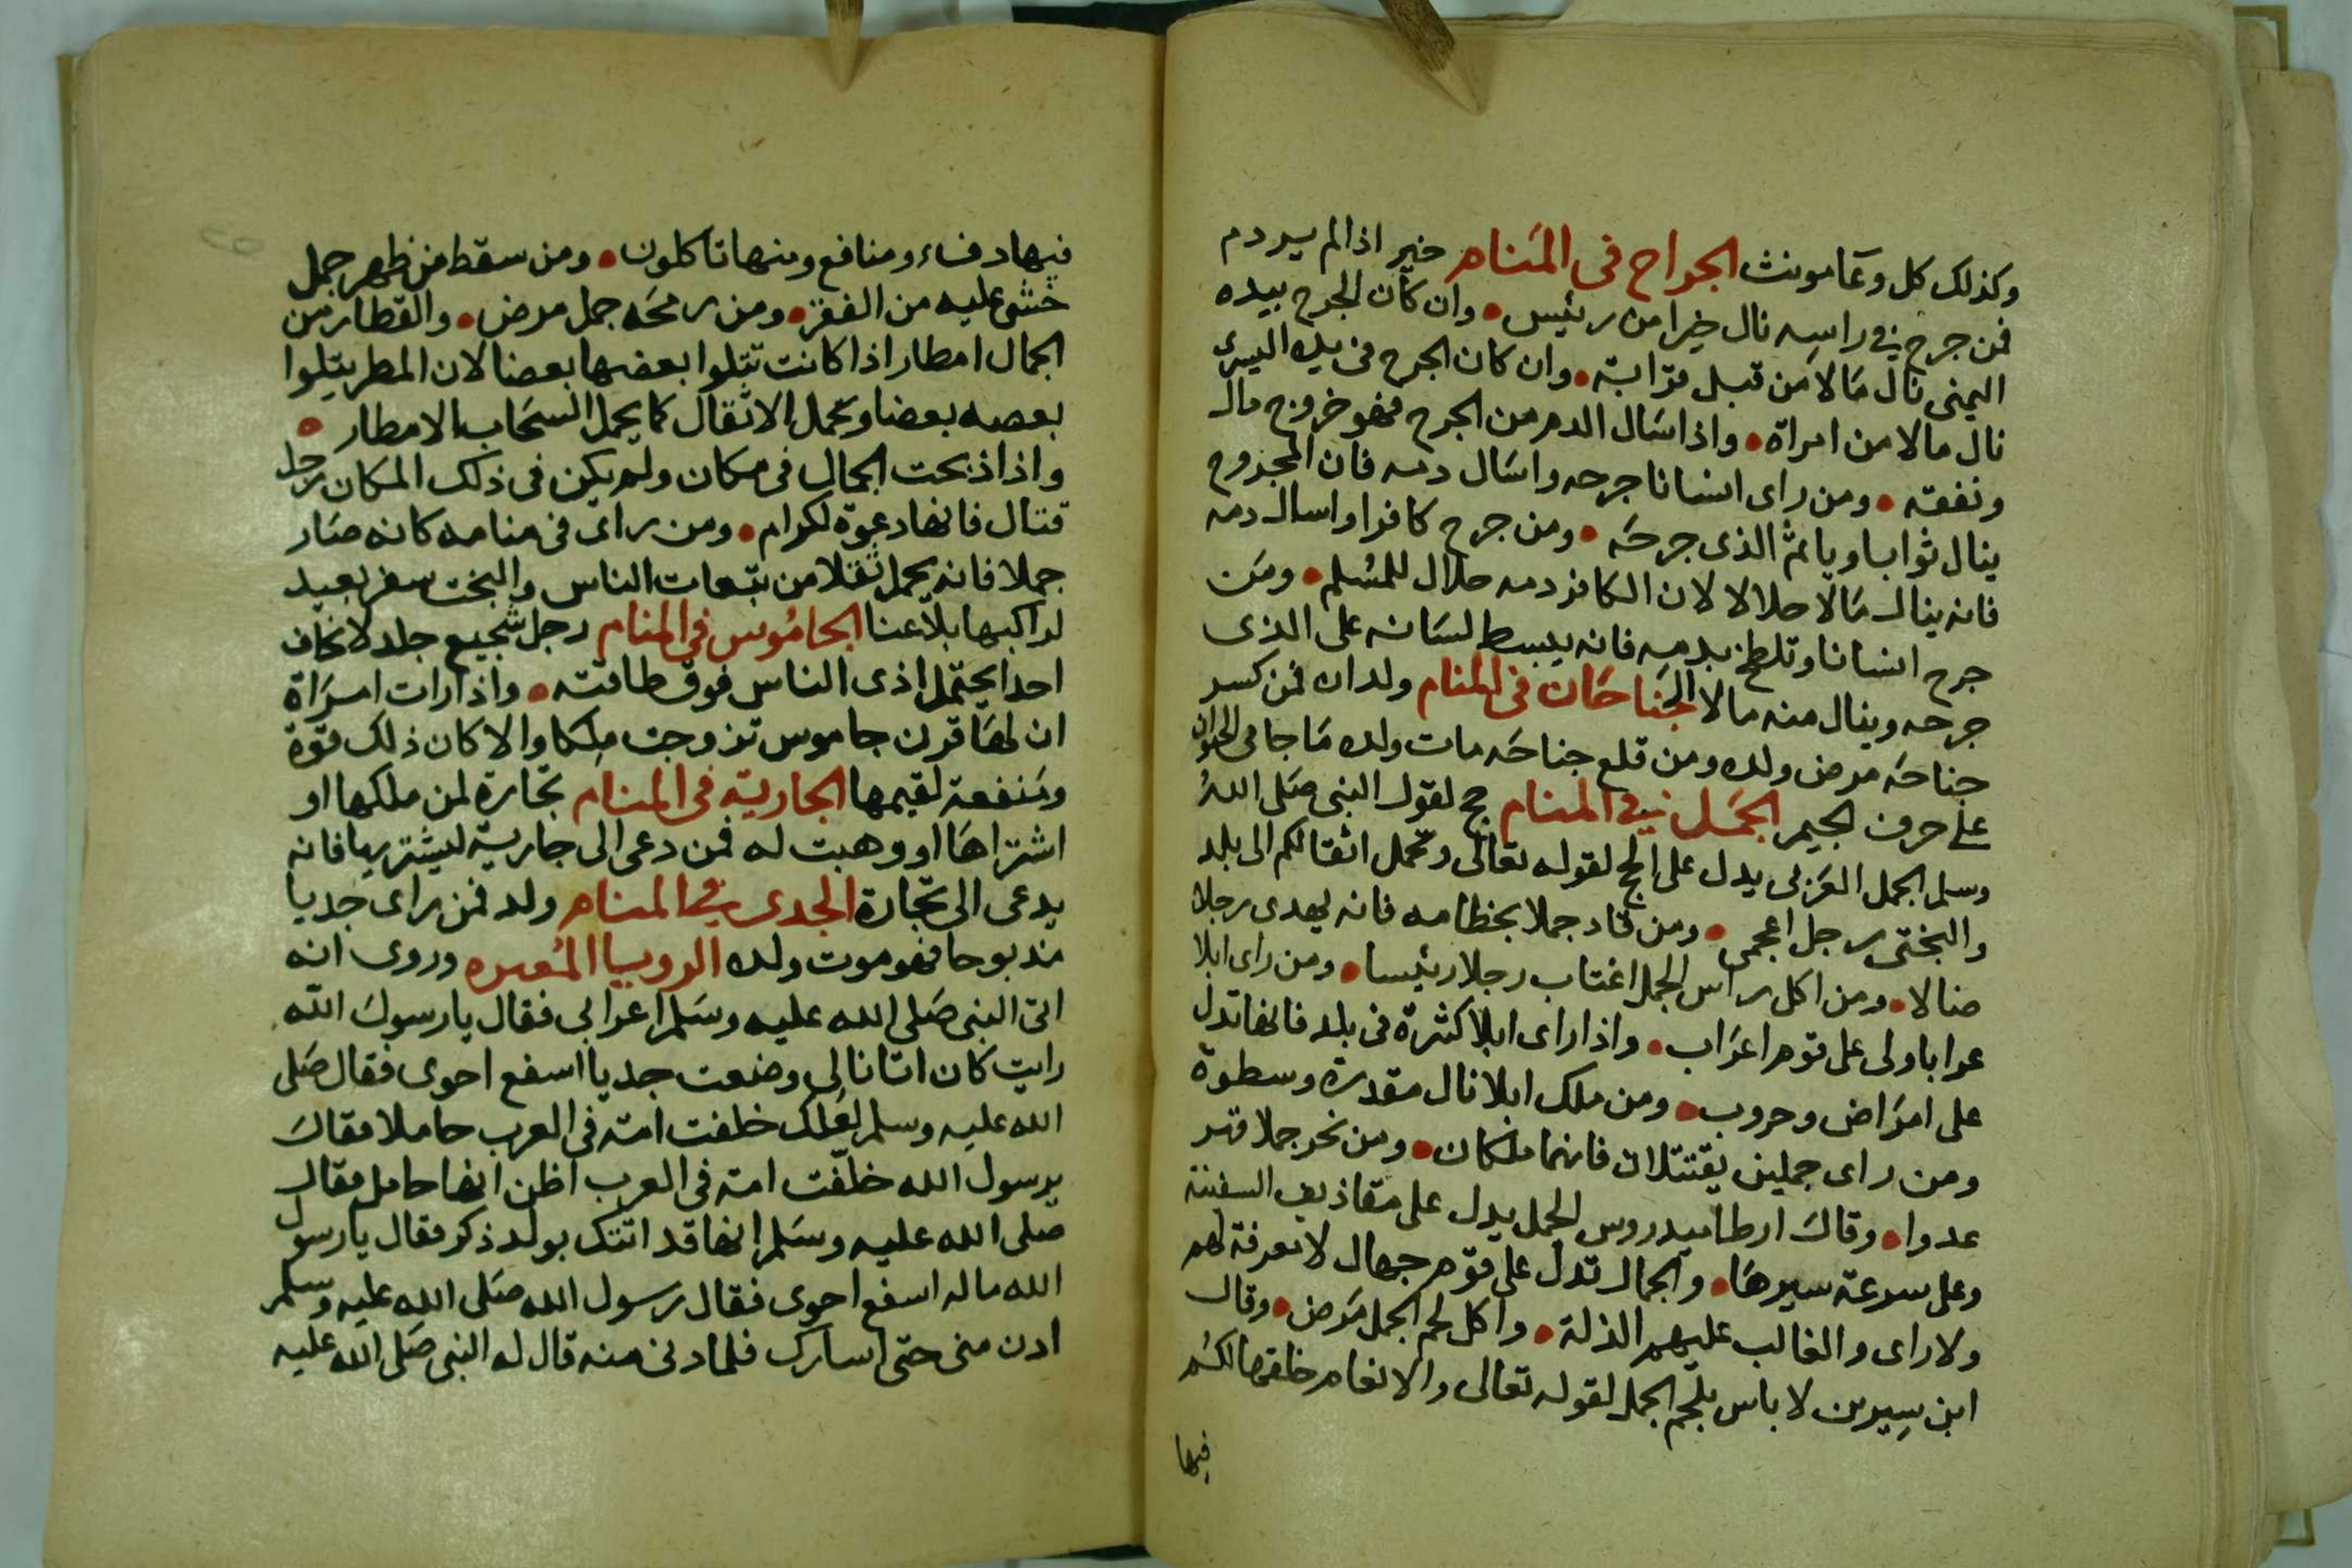 وكذلك كل وعا مونث الجراح فى المنام خير اذا لم يسر دم
فمن جرح فى راسه نال خيرا من رئيس ۰ وان كان الجرح بيده
اليمنى نال مالا من قبل قرابته ۰ وان كان الجرح فى يده اليسرى
نال مالا من امراة ۰ واذا سال الدم من الجرح فهو خروج مال
ونفقه ۰ ومن راى انسانا جرحه واسال دمه فان المجروح
ينال ثوابا وياثم الذى جرحه ۰ ومن جرح كافرا واسال دمه
فانه ينال مالا حلالا لان الكافر دمه حلال للمسلم ۰ ومن
جرح انسانا وتلطخ بدمه فانه يبسط لسانه على الذى
جرحه وينال منه مالا الجناحان فى المنام ولدان فمن كسر
جناحه مرض ولده ومن قلع جناحه مات ولده ما جا فى الحيوان
على حرف الجيم الجمل فى المنام حج لقول النبى صلى الله
وسلم الجمل العربى يدل على الحج لقوله تعالى وتحمل اثقالكم الى بلد
والبختى رجل اعجمى ۰ ومن قاد جملا بخطامه فانه يهدى رجلا
ضالا ۰ ومن اكل راس الجمل اغتاب رجلا رئيسا ۰ ومن راى ابلا
عرابا ولى على قوم اعراب ۰ واذا راى ابلا كثرة فى بلد فانها تدل
على امراض وحروب ۰ ومن ملك ابلا نال مقدرة وسطوة
ومن راى جملين يقتتلان فانهما ملكان ۰ ومن نحر جملا قهر
عدوا ۰ وقال ارطاميدروس الجمل يدل على مقاذيف السفينة
وعلى سرعة سيرها ۰ والجمال تدل على قوم جهال لا معرفة لهم
ولا راى والغالب عليهم الذلة ۰ واكل لحم الجمل مرض ۰ وقال
ابن سيرين لا باس بلحم الجمل لقوله تعالى والانعام خلقها لكم
فيها
فيها دفاء ومنافع ومنها تاكلون ۰ ومن سقط من ظهر جمل
خشى عليه من الفقر ۰ ومن رمحه جمل مرض ۰ والقطار من
الجمال امطار اذا كانت تتلوا بعضها بعضا لان المطر يتلوا
بعضه بعضا وتحمل الاثقال كما يحمل السحاب الامطار ۰
واذا ذبحت الجمال فى مكان ولم يكن فى ذلك المكان رجل
قتال فانها دعوة لكرام ۰ ومن راى فى منامه كانه صار
جملا فانه يحمل ثقلا من تبعات الناس والبخت سفر بعيد
لراكبها بلا عنا الجاموس فى المنام رجل شجيع جلد لا يخاف
احدا يحتمل اذى الناس فوق طاقته ۰ واذا رات امراة
ان لها قرن جاموس تزوجت ملكا والا كان ذلك قوة
ومنفعة لقيمها الجارية فى المنام تجارة لمن ملكها او
اشتراها او وهبت له فمن دعى الى جارية ليشتريها فانه
يدعى الى تجارة الجدى فى المنام ولد فمن راى جديا
مذبوحا فهو موت ولده الرويا المعبره وروى انه
اتى النبى صلى الله عليه وسلم اعرابى فقال يا رسول الله
رايت كان اتانا لى وضعت جديا اسفع احوى فقال صلى
الله عليه وسلم لعلك خلفت امة فى العرب حاملا فقال
يرسول الله خلفت امة فى العرب اظن انها حامل فقال
صلى الله عليه وسلم انها قد اتتك بولد ذكر فقال يا رسول
الله ما له اسفع احوى فقال رسول الله صلى الله عليه وسلم
ادن منى حتى اسارك فلما دنى منه قال له النبى صلى الله عليه